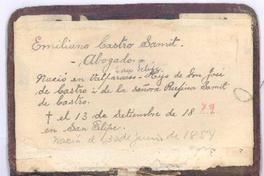 Emiliano Castro Samit.
- Abogado. -
San Felipe
Nació en Valparaiso. - Hijo de Don José
de Castro i de la señora Rufina Samit
de Castro.
† el 13 de Setiembre de 1879
en San Felipe.
Nació el 30 de Junio de 1854